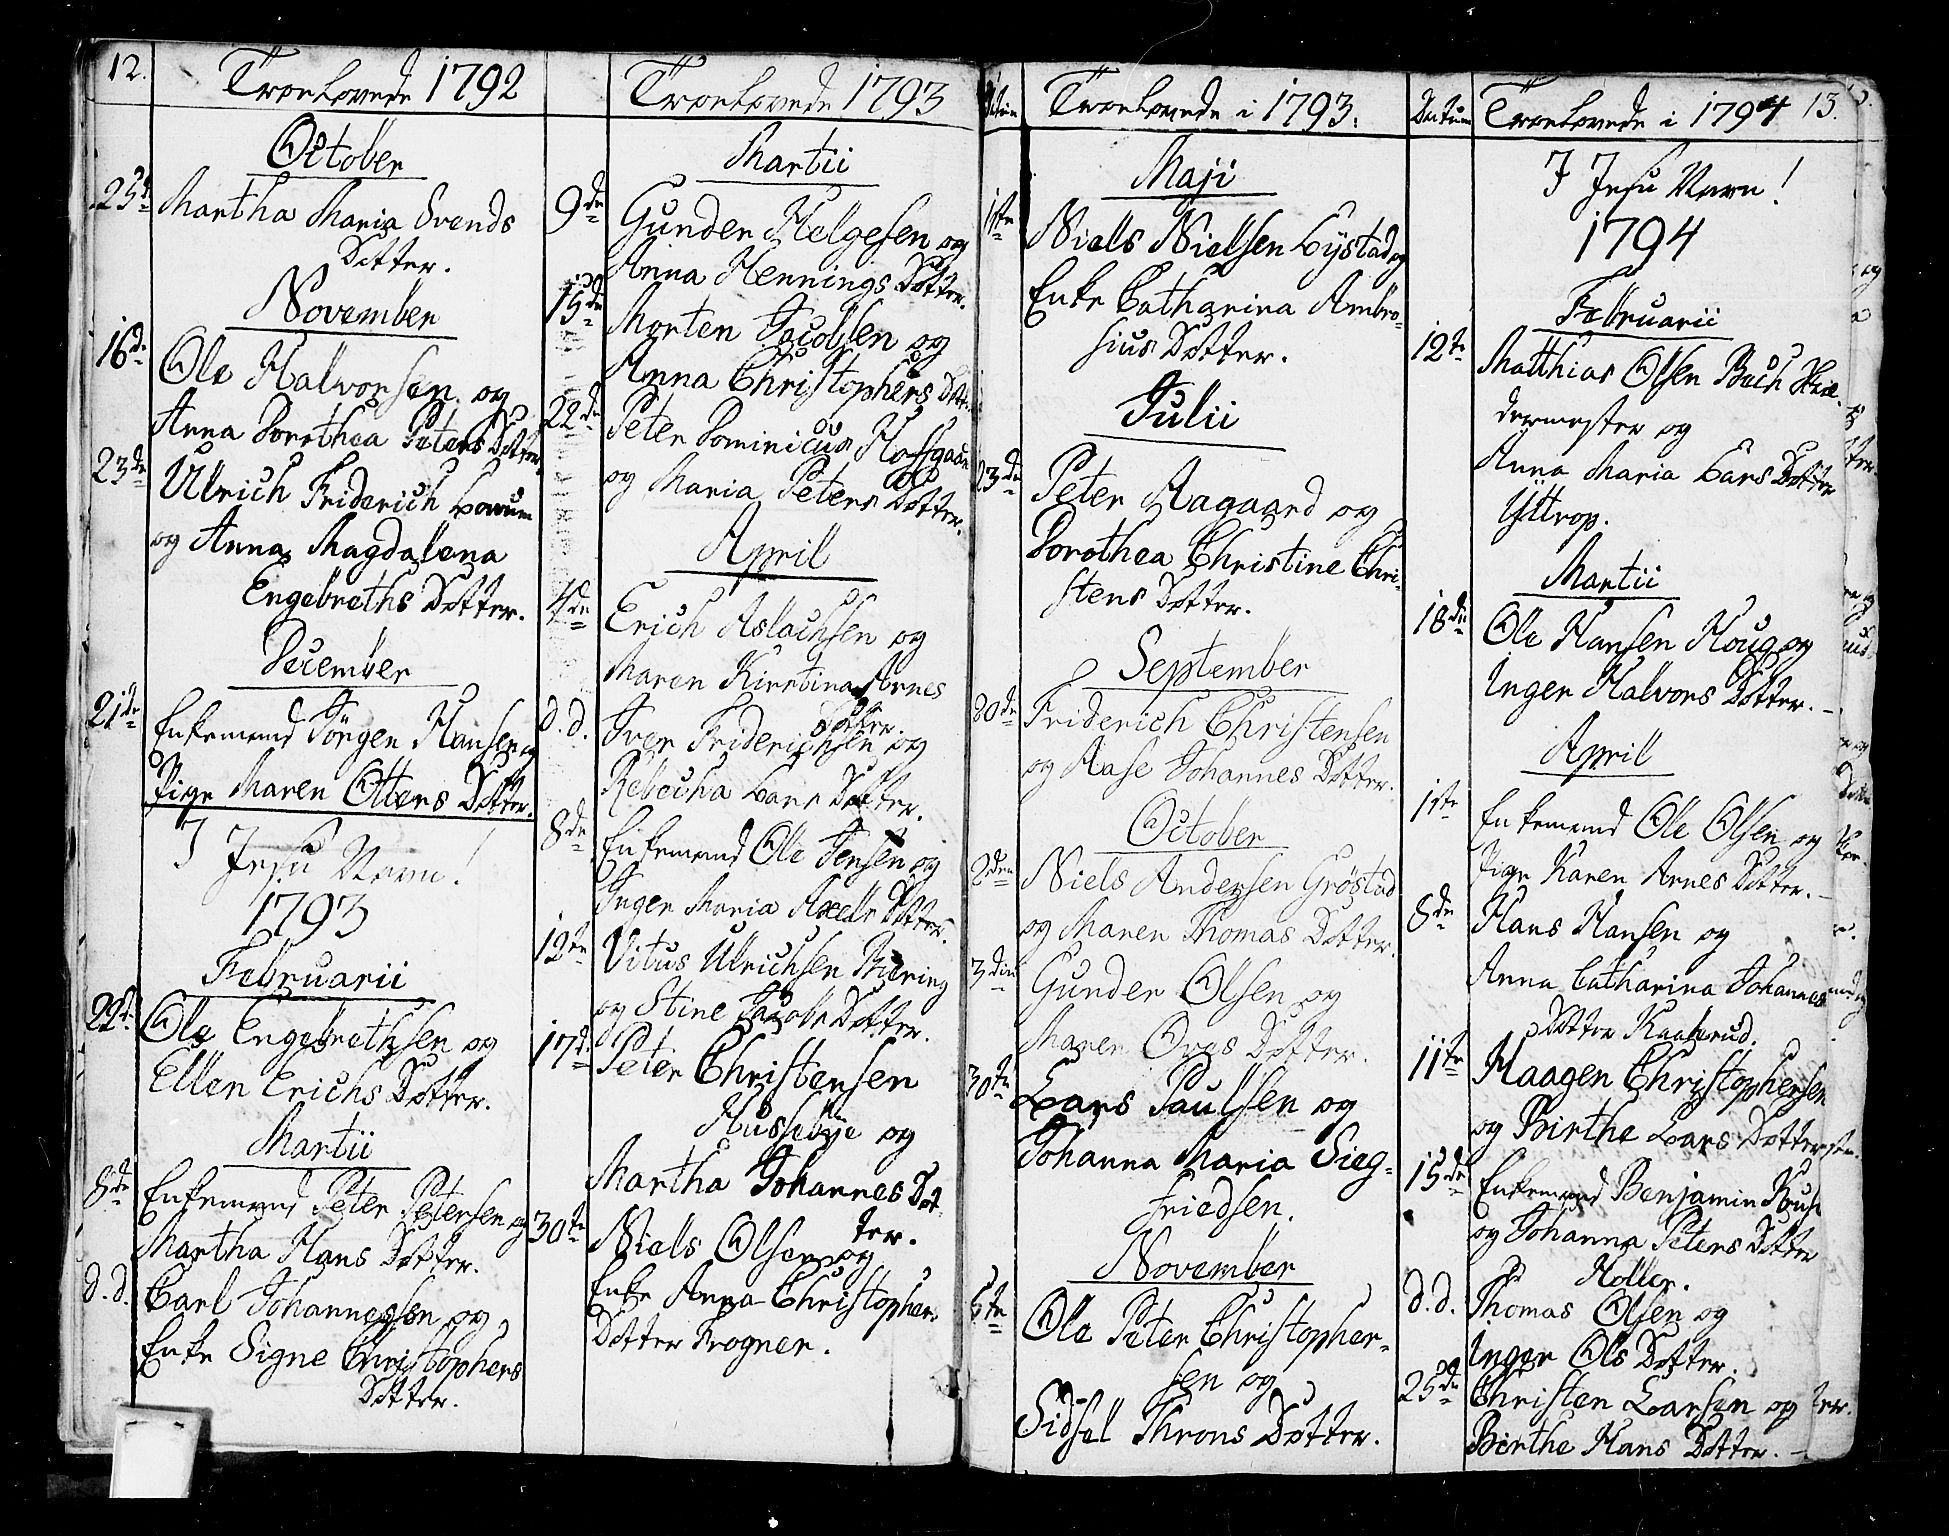 12.
Troelovede 1792
October
25d Martha Maria Svends
Dotter.
November
16de Ole Halvorsen og
Anna Dorothea Peters Dotter
23de Ulrich Friderich
og Anna Magdalena
Engebreths Dotter.
December
21de Enkemand Jörgen Hansen og
Pige Maren Otters Dotter.
I Jesu Navn!
1793
Februarii
22d Ole Engebrethsen og
Ellen Erichs Dotter.
Martii
8de Enkemand Peter Petersen og
Martha Hans Dotter.
d.d. Carl Johannessen og
Enke Signe Christophers
Dotter.
Troelovede 1793
Martii
9de Gunder Helgesen og
Anna Hennings Dotter.
15de Morten Jacobsen og
Anna Christophers Dott.
22de Peter Dominicus
og Maria Peters Dotter.
April
4de Erich Aslachsen og
Maren Kirstina Arnes
Dotter.
d.d. Iver Friderichsen og
Rebecha Lars Dotter.
8de Enkemand Ole Jensen og
Inger Maria Axells Dotter.
12te Vitus Ulrichsen
og Stine Jacobs Dotter.
17d. Peter Christensen
Hussebye og
Martha Johannes Dot
ter.
30te Niels Olsen og
Enke Anna Christophers
Dotter Frogner.
Troelovede i 1793.
Maji
1ste Niels Nielsen Lystad og
Enke Catharina Ambro-
sius Dotter.
Julii
23de Peter Aagaard og
Dorothea Christine Chri-
stens Dotter.
September
30de Friderich Christensen
og Aase Johannes Dotter.
October
2den Niels Andersen Gröstad
og Maren Thomas Dotter.
3die Gunder Olsen og
Maren Oves Dotter.
30te Lars Paulsen og
Johanna Maria Sieg-
friedsen.
November
5te Ole Peter Christopher-
sen og
Sidsel Throns Dotter.
Datum
Troelovede i 1794 13.
I Jesu Navn!
1794
Februarii
12te Matthias Olsen Bach
og
Anna Maria Lars Dotter
Yttrop.
Martii
18de Ole Hansen Houg og
Inger Halvors Dotter.
April
1ste Enkemand Ole Olsen og
Pige Karen Arnes Dotter.
8de Hans Hansen og
Anna Catharina Johannes
Dotter Kaaberud.
11te Haagen Christophersen
og Birthe Lars Dotter
15de Enkemand Benjamin
og Johanna Peters Dotter
Holler.
d.d. Thomas Olsen og
Inger Ols Dotter.
25de Christen Larsen og
Birthe Hans Dotter.